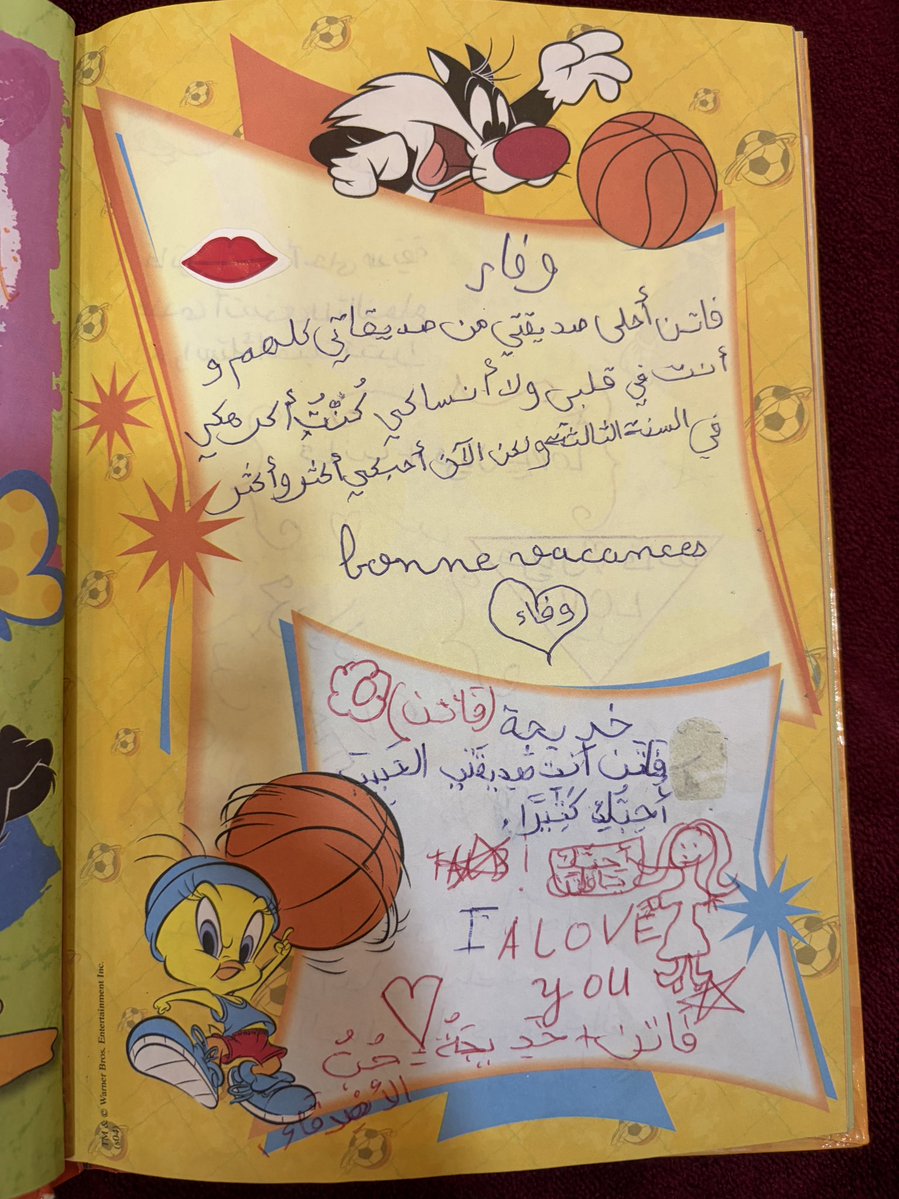 وفاء
فاتن أحلى صديقتي من صديقاتي كلهم و
أنت في قلبي ولا أنساكي كُنْتُ أكرهكي
في السنة الثالثة ولكن الآن أحبكي أكثر وأكثر
bonne vacances
وفاء
خديجة (فاتن)
فَاتَن أنت صديقتي الحبيبة
أُحِبُّكِ كَثِيرًا.
!
أحبك
يا فاتن
I A LOVE
you
فاتن + خديجة = حُبُّ
الأصدقاء.
TM & © Warner Bros. Entertainment Inc.
(s04)